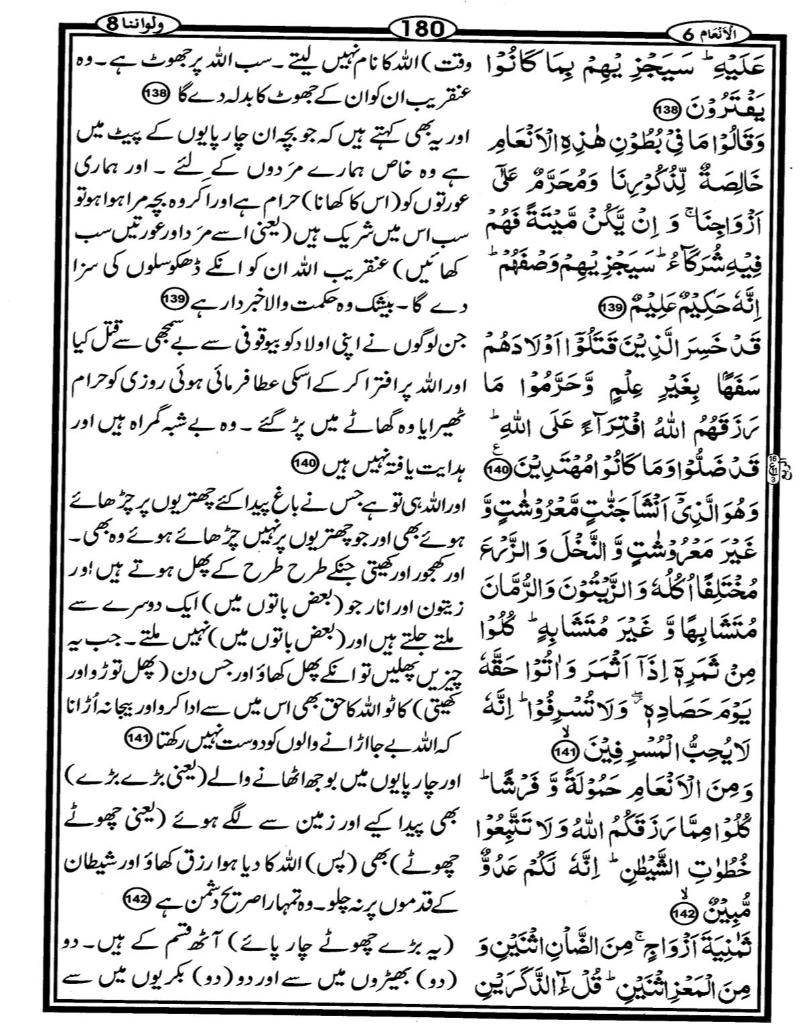 الانعام 6
180
ولواننا 8
عَلَيْهِ ؕ سَيَجْزِيْهِمْ بِمَا كَانُوْا
يَفْتَرُوْنَ 138
وَقَالُوْا مَا فِيْ بُطُوْنِ هٰذِهِ الْاَنْعَامِ
خَالِصَةٌ لِّذُكُوْرِنَا وَمُحَرَّمٌ عَلٰٓى
اَزْوَاجِنَا ۚ وَ اِنْ يَّكُنْ مَّيْتَةً فَهُمْ
فِيْهِ شُرَكَآءُ ؕ سَيَجْزِيْهِمْ وَصْفَهُمْ ؕ
اِنَّهٗ حَكِيْمٌ عَلِيْمٌ 139
قَدْ خَسِرَ الَّذِيْنَ قَتَلُوْٓا اَوْلَادَهُمْ
سَفَهًۢا بِغَيْرِ عِلْمٍ وَّحَرَّمُوْا مَا
رَزَقَهُمُ اللّٰهُ افْتِرَآءً عَلَى اللّٰهِ ؕ
قَدْ ضَلُّوْا وَمَا كَانُوْا مُهْتَدِيْنَ 140
وَهُوَ الَّذِيْٓ اَنْشَاَ جَنّٰتٍ مَّعْرُوْشٰتٍ وَّ
غَيْرَ مَعْرُوْشٰتٍ وَّ النَّخْلَ وَ الزَّرْعَ
مُخْتَلِفًا اُكُلُهٗ وَ الزَّيْتُوْنَ وَالرُّمَّانَ
مُتَشَابِهًا وَّ غَيْرَ مُتَشَابِهٍ ؕ كُلُوْا
مِنْ ثَمَرِهٖٓ اِذَآ اَثْمَرَ وَ اٰتُوْا حَقَّهٗ
يَوْمَ حَصَادِهٖ ۖ وَلَا تُسْرِفُوْا ؕ اِنَّهٗ
لَا يُحِبُّ الْمُسْرِفِيْنَ 141
وَمِنَ الْاَنْعَامِ حَمُوْلَةً وَّ فَرْشًا ؕ
كُلُوْا مِمَّا رَزَقَكُمُ اللّٰهُ وَلَا تَتَّبِعُوْا
خُطُوٰتِ الشَّيْطٰنِ ؕ اِنَّهٗ لَكُمْ عَدُوٌّ
مُّبِيْنٌ 142
ثَمٰنِيَةَ اَزْوَاجٍ ۚ مِنَ الضَّاْنِ اثْنَيْنِ وَ
مِنَ الْمَعْزِ اثْنَيْنِ ؕ قُلْ ءٰٓالذَّكَرَيْنِ
وقت) اللہ کا نام نہیں لیتے۔ سب اللہ پر جھوٹ ہے۔ وہ
عنقریب ان کو ان کے جھوٹ کا بدلہ دے گا 138
اور یہ بھی کہتے ہیں کہ جو بچہ ان چارپایوں کے پیٹ میں
ہے وہ خاص ہمارے مردوں کے لئے ۔ اور ہماری
عورتوں کو (اس کا کھانا) حرام ہے اور اگر وہ بچہ مرا ہوا ہو تو
سب اس میں شریک ہیں (یعنی اسے مرد اور عورتیں سب
کھائیں) عنقریب اللہ ان کو انکے ڈھکوسلوں کی سزا
دے گا ۔ بیشک وہ حکمت والا خبردار ہے 139
جن لوگوں نے اپنی اولاد کو بیوقوفی سے بے سمجھی سے قتل کیا
اور اللہ پر افترا کر کے اسکی عطا فرمائی ہوئی روزی کو حرام
ٹھیرایا وہ گھاٹے میں پڑ گئے ۔ وہ بے شبہ گمراہ ہیں اور
ہدایت یافتہ نہیں ہیں 140
اور اللہ ہی تو ہے جس نے باغ پیدا کئے چھتریوں پر چڑھائے
ہوئے بھی اور جو چھتریوں پر نہیں چڑھائے ہوئے وہ بھی۔
اور کھجور اور کھیتی جنکے طرح طرح کے پھل ہوتے ہیں اور
زیتون اور انار جو (بعض باتوں میں) ایک دوسرے سے
ملتے جلتے ہیں اور (بعض باتوں میں) نہیں ملتے۔ جب یہ
چیزیں پھلیں تو انکے پھل کھاؤ اور جس دن (پھل توڑو اور
کھیتی) کاٹو اللہ کا حق بھی اس میں سے ادا کرو اور بیجا نہ اڑانا
کہ اللہ بے جا اڑانے والوں کو دوست نہیں رکھتا 141
اور چارپایوں میں بوجھ اٹھانے والے (یعنی بڑے بڑے)
بھی پیدا کیے اور زمین سے لگے ہوئے (یعنی چھوٹے
چھوٹے) بھی (پس) اللہ کا دیا ہوا رزق کھاؤ اور شیطان
کے قدموں پر نہ چلو۔ وہ تمہارا صریح دشمن ہے 142
(یہ بڑے چھوٹے چارپائے) آٹھ قسم کے ہیں۔ دو
(دو) بھیڑوں میں سے اور دو (دو) بکریوں میں سے
الربع